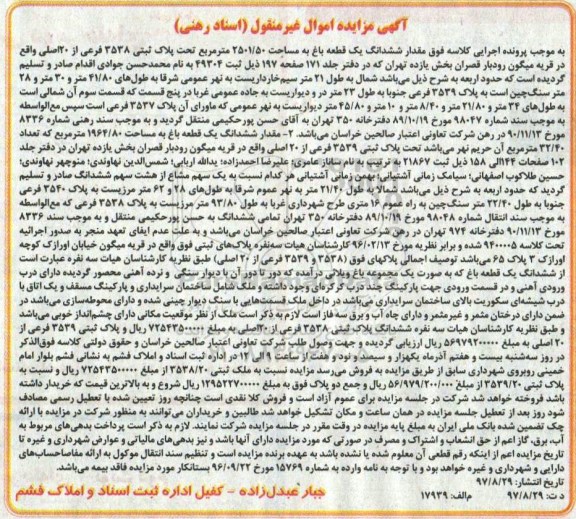 آگهی مزایده اموال غیرمنقول (اسناد رهنی)
به موجب پرونده اجرایی کلاسه فوق مقدار ششدانگ یک قطعه باغ به مساحت ۲۵۰۱/۵۰ مترمربع تحت پلاک ثبتی ۳۵۳۸ فرعی از ۲۰اصلی واقع
در قریه میگون رودبار قصران بخش یازده تهران که در دفتر جلد ۱۷۱ صفحه ۱۹۷ ذیل ثبت ۴۹۳۰۴ به نام محمدحسن جوادی اقدام صادر و تسلیم
گردیده است که حدود اربعه به شرح ذیل می‌باشد شمال به طول ۲۱ متر سیم‌خارداریست به نهر عمومی شرقا به طول‌های ۴۱/۸۰ متر و ۳۰ متر و ۲۸
متر سنگ‌چین است به پلاک ۳۵۳۹ فرعی جنوبا به طول ۲۳ متر و دیواریست به جاده عمومی غربا در پنج قسمت که قسمت سوم آن شمالی است
به طول‌های ۳۴ متر و ۲۱/۸۰ متر و ۸/۴۰ متر و ۱۰ متر و ۴۵/۸۰ متر دیواریست به نهر عمومی که ماورای آن پلاک ۳۵۳۷ فرعی است سپس مع‌الواسطه
به موجب سند شماره ۹۸۰۴۷ مورخ ۸۹/۱۰/۱۹ دفترخانه ۳۵۰ تهران به آقای حسن پورحکیمی منتقل گردید و به موجب سند رهنی شماره ۸۳۳۶
مورخ ۹۰/۱۱/۱۳ در رهن شرکت تعاونی اعتبار صالحین خراسان می‌باشد. ۲- مقدار ششدانگ یک قطعه باغ به مساحت ۱۹۶۴/۸۰ مترمربع که تعداد
۳۲/۴۰ مترمربع آن حریم نهر می‌باشد تحت پلاک ثبتی ۳۵۳۹ فرعی از ۲۰ اصلی واقع در قریه میگون رودبار قصران بخش یازده تهران در دفتر جلد
۱۰۲ صفحات ۱۴۴الی ۱۵۸ ذیل ثبت ۲۱۸۶۷ به ترتیب به اسامی ساناز عامری؛ علیرضا احمدزاده؛ یدالله اربابی؛ شمس‌الدین نهاوندی؛ منوچهر نهاوندی؛
حسین طلاکوب اصفهانی؛ سیامک زمانی آشتیانی؛ بهمن زمانی آشتیانی هر کدام نسبت به یک سهم مشاع از هشت سهم ششدانگ صادر و تسلیم
گردید که حدود اربعه به شرح ذیل می‌باشد شمالا به طول ۲۱/۴۰ متر به نهر عموم شرقا به طول‌های ۲۸ و ۶۲ متر مرزیست به پلاک ۳۵۴۰ فرعی
جنوبا به طول ۲۲/۴۰ متر سنگ‌چین به راه عموم ۱۶ متری طرح شهرداری غربا به طول ۹۳/۸۰ متر مرزیست به پلاک ۳۵۳۸ فرعی که مع‌الواسطه
به موجب سند انتقال شماره ۹۸۰۴۸ مورخ ۸۹/۱۰/۱۹ دفترخانه ۳۵۰ تهران تمامی ششدانگ به حسن پورحکیمی منتقل و به موجب سند ۸۳۳۶
مورخ ۹۰/۱۱/۱۳ دفترخانه ۹۷۴ تهران در رهن شرکت تعاونی اعتبار صالحین خراسان می‌باشد و به علت عدم ایفای تعهد منجر به صدور اجرائیه
تحت کلاسه ۹۴۰۰۰۵ شده و برابر نظریه مورخ ۹۶/۰۲/۱۳ کارشناسان هیات سه‌نفره پلاک‌های ثبتی فوق واقع در قریه میگون خیابان اورازک کوچه
اورازک ۳ پلاک ۶۵ می‌باشد توصیف اجمالی پلاکهای فوق (۳۵۳۸ و ۳۵۳۹ فرعی از ۲۰ اصلی) طبق نظریه کارشناسان هیات سه نفره عبارت است
از ششدانگ یک قطعه باغ که به صورت یک مجموعه باغ ویلایی درآمده که دور تا دور آن با دیوار سنگی و نرده آهنی محصور گردیده دارای درب
ورودی آهنی و در قسمت ورودی جهت پارکینگ چند دستگاه کرگرهای وجود داشته و ملک شامل ساختمان سرایداری و پارکینگ مسقف و یک اتاق با
درب شیشه‌ای سکوریت بالای ساختمان سرایداری می‌باشد در داخل ملک قسمت‌هایی با سنگ دیوار چینی شده و دارای محوطه‌سازی می‌باشد در
ضمن دارای درختان مثمر و غیرمثمر و دارای چاه آب و برق سه فاز است لازم به ذکر است ملک از نظر موقعیت مکانی دارای چشم‌انداز خوبی می‌باشد
و طبق نظریه کارشناسان هیات سه نفره ششدانگ پلاک ثبتی ۳۵۳۸ فرعی از ۲۰اصلی به مبلغ ۷۲۵۴۳۵۰۰۰۰۰ ریال و پلاک ثبتی ۳۵۳۹ فرعی از
۲۰ اصلی به مبلغ ۵۶۹۷۹۲۰۰۰۰۰ ریال ارزیابی گردیده و جهت وصول طلب شرکت تعاونی اعتبار صالحین خراسان و حقوق دولتی کلاسه فوق‌الذکر
در روز سه‌شنبه بیست و هفتم آذرماه یکهزار و سیصد و نود و هفت از ساعت ۹ الی ۱۲ در اداره ثبت اسناد و املاک فشم به نشانی فشم بلوار امام
خمینی روبروی شهرداری سابق از طریق مزایده به فروش می‌رسد مزایده نسبت به ملک ثبتی ۳۵۳۸/۲۰ از مبلغ ۷۲۵۴۳۵۰۰۰۰۰ ریال و نسبت به
پلاک ثبتی ۳۵۳۹/۲۰ از مبلغ ۵۶/۹۷۹/۲۰۰/۰۰۰ ریال و جمع دو پلاک فوق به مبلغ ۱۲۹۵۲۲۷۰۰۰۰۰ ریال شروع و به بالاترین قیمت که خریدار داشته
باشد فروخته خواهد شد شرکت در جلسه مزایده برای عموم آزاد است و فروش کلا نقدی است چنانچه روز تعیین شده با تعطیل رسمی مصادف
شود روز بعد از تعطیل جلسه مزایده در همان ساعت و مکان تشکیل خواهد شد طالبین و خریداران می‌توانند به منظور شرکت در مزایده با ارائه
چک تضمین شده بانک ملی ایران به مبلغ پایه مزایده در وقت مقرر در جلسه مزایده شرکت نمایند. لازم به ذکر است پرداخت بدهی‌های مربوط به
آب، برق، گاز اعم از حق انشعاب و اشتراک و مصرف در صورتی که مورد مزایده دارای آنها باشد و نیز بدهی‌های مالیاتی و عوارض شهرداری و غیره تا
تاریخ مزایده اعم از اینکه رقم قطعی آن معلوم شده یا نشده باشد به عهده برنده مزایده است و تنظیم سند انتقال موکول به ارائه مفاصاحساب‌های
دارایی و شهرداری و غیره خواهد بود و با توجه به نامه وارده به شماره ۱۵۷۶۹ مورخ ۹۶/۰۹/۲۲ بستانکار مورد مزایده فاقد بیمه می‌باشد.
تاریخ انتشار: ۹۷/۸/۲۹
د.ت: ۹۷/۸/۲۹ م‌الف: ۱۷۹۳۹
جبار عبدل‌زاده - کفیل اداره ثبت اسناد و املاک فشم